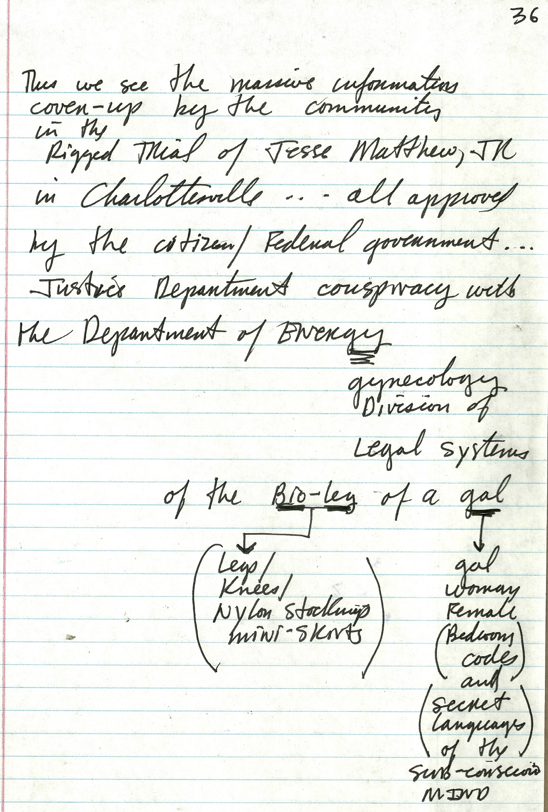 36
Thus we see the massive information
cover-up by the community
in the
Rigged Trial of Jesse Matthew, JR
in Charlottesville ... all approved
by the citizen/ Federal government...
Justice Department conspiracy with
the Department of Energy
gynecology
Division of
Legal Systems
of the Bio-leg of a gal
(Legs/
Knees/
Nylon Stockings
mini-skirts)
gal
woman
Female
(Bedroom
codes)
and
(secret
languages
of the)
sub-conscious
MIND